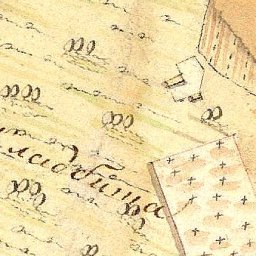 кладбища